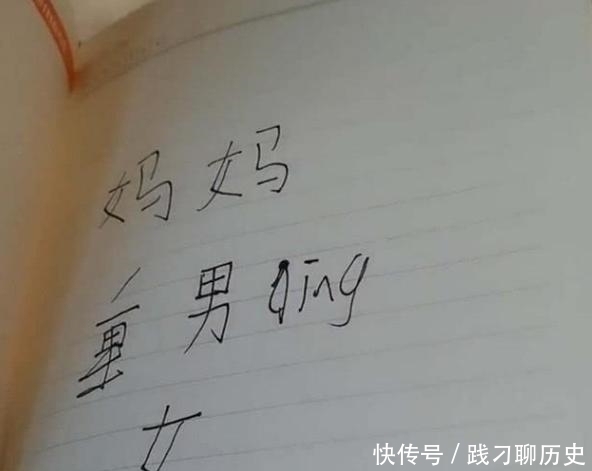 妈妈
重男qing
女
快传号 / 践刁聊历史